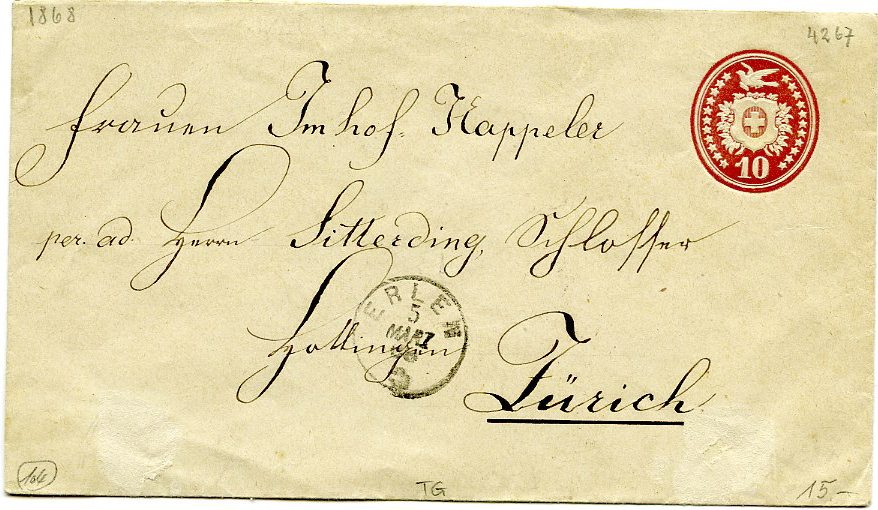 1868
4267
10
Frauen Imhof-Kappeler
per. ad. Herrn Sitterding, Schlosser
ERLEN
5
MÄRZ
Hottingen
Zürich
104
TG
15.–